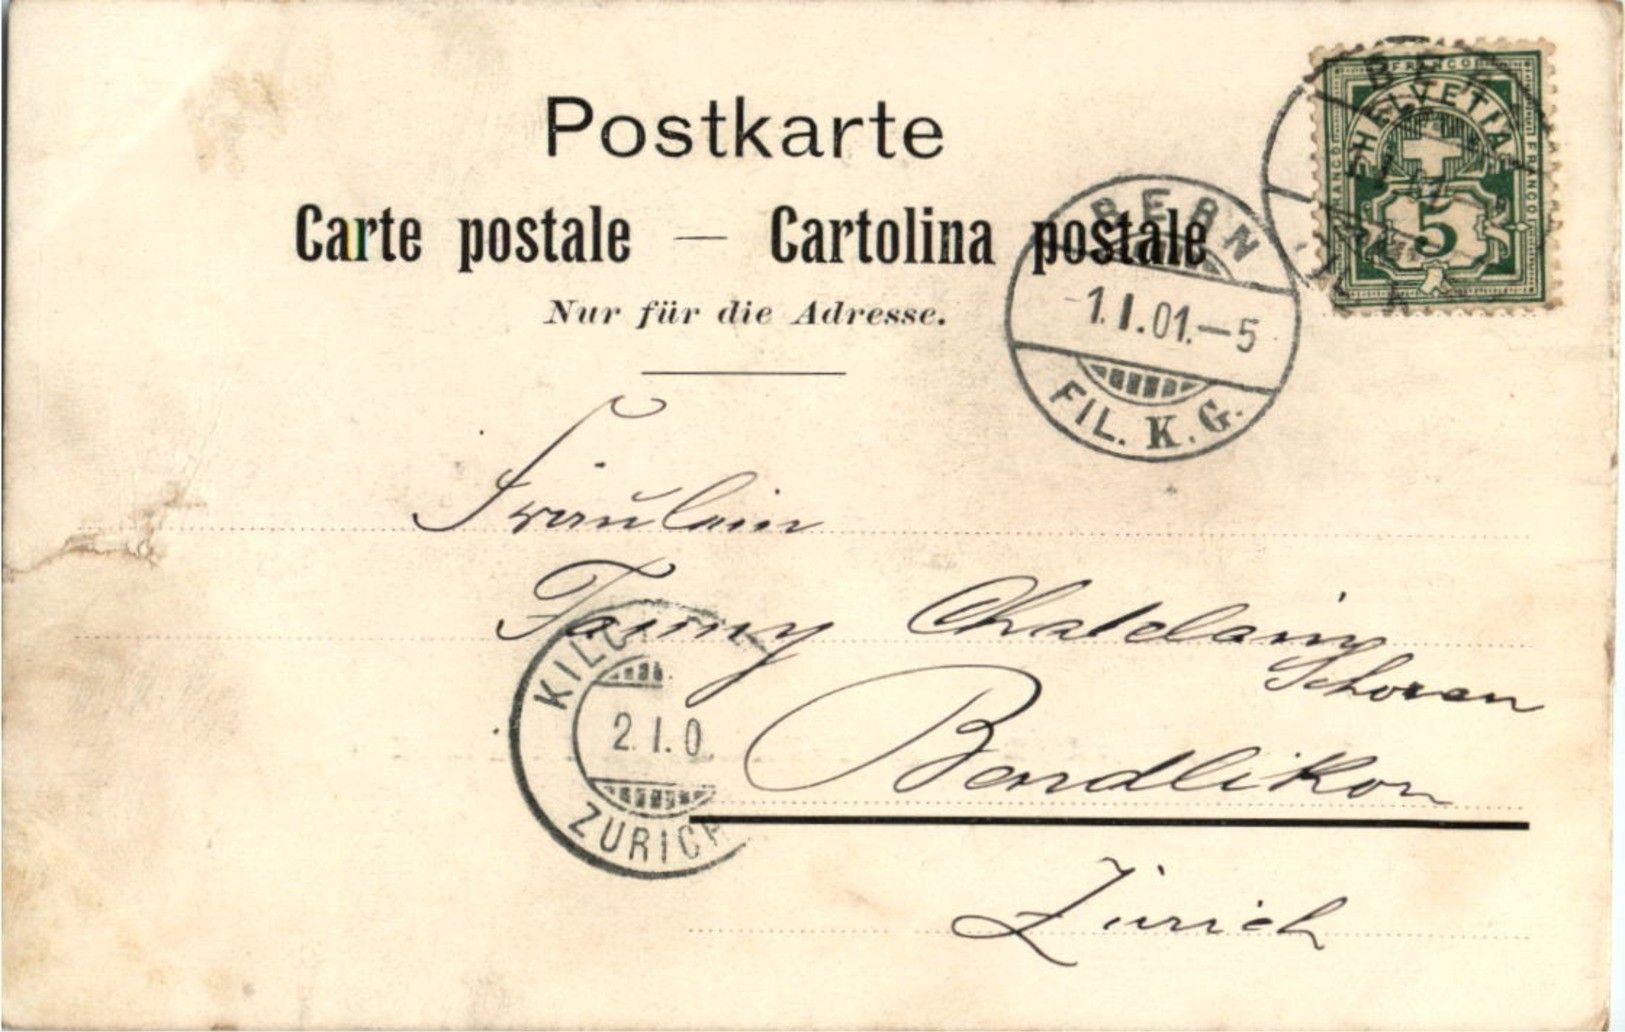 Postkarte
Carte postale — Cartolina postale
Nur für die Adresse.
FRANCO
HELVETIA
FRANCO
FRANCO
5
BERN
1.I.01.—5
FIL. K. G.
Fräulein
Fanny Chatelain
Schoren
Bendlikon
Zürich
2.I.0
ZÜRICH